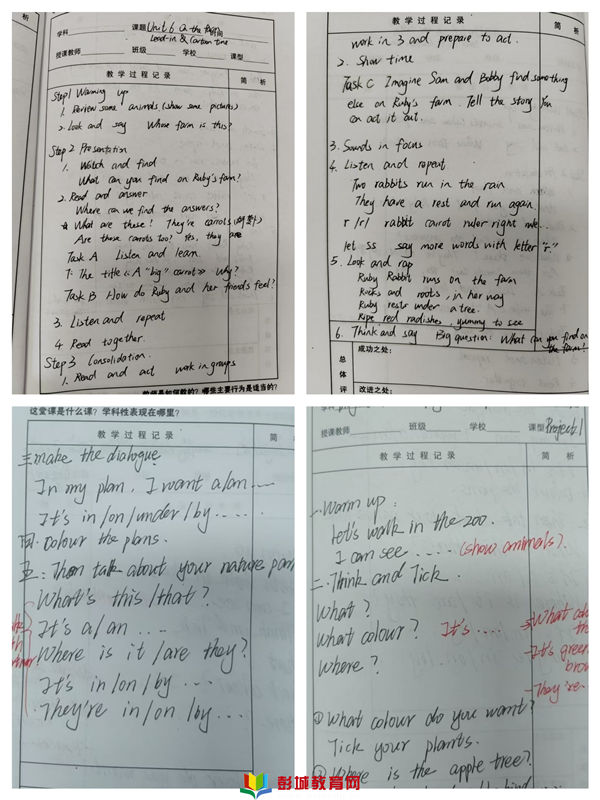 学科 课题 Unit 6 On the farm 时间
Lead-in & Cartoon time
授课教师 班级 学校 课型
教 学 过 程 记 录 简 析
Step1 Warming up
1. Review some animals (show some pictures)
2. Look and say Whose farm is this?
Step 2 Presentation
1. Watch and find
What can you find on Ruby's farm?
2. Read and answer
Where can we find the answers?
What are these? They're carrots
Are these carrots too? Yes, they are
Task A Listen and learn.
T: The title 《A "big" carrot》 why?
Task B How do Ruby and her friends feel?
3. Listen and repeat
4. Read together.
Step 3 Consolidation.
1. Read and act work in groups
教 学 过 程 记 录 简 析
work in 3 and prepare to act.
2. Show time
Task C Imagine Sam and Bobby find something
else on Ruby's farm. Tell the story. You
can act it out.
3. Sounds in focus
4. Listen and repeat
Two rabbits run in the rain
They have a rest and run again
r /r/ rabbit carrot ruler right
let ss say more words with letter "r."
5. Look and rap
Ruby Rabbit runs on the farm
Rocks and roots, in her way
Ruby rests under a tree.
Ripe red radishes, yummy to see
6. Think and say Big question: What can you find on
the farm?
总体评
成功之处:
改进之处:
这堂课是什么课？学科性表现在哪里？
教 学 过 程 记 录 简
三. make the dialogue.
In my plan, I want a/an ...
It's in/on/under/by ....
四. Colour the plans.
五. Then talk about your nature park
What's this/that?
It's a/an ...
Where is it/are they?
It's in/on/by ...
They're in/on/by ...
授课教师 班级 学校 课型 Project 1
教 学 过 程 记 录 简 析
一. Warm up:
Let's walk in the zoo.
I can see .... (show animals).
二. Think and Tick.
What?
What colour? It's ....
Where?
What
It's green
They're
① What colour do you want?
Tick your plants.
② Where is the apple tree?
彭城教育网